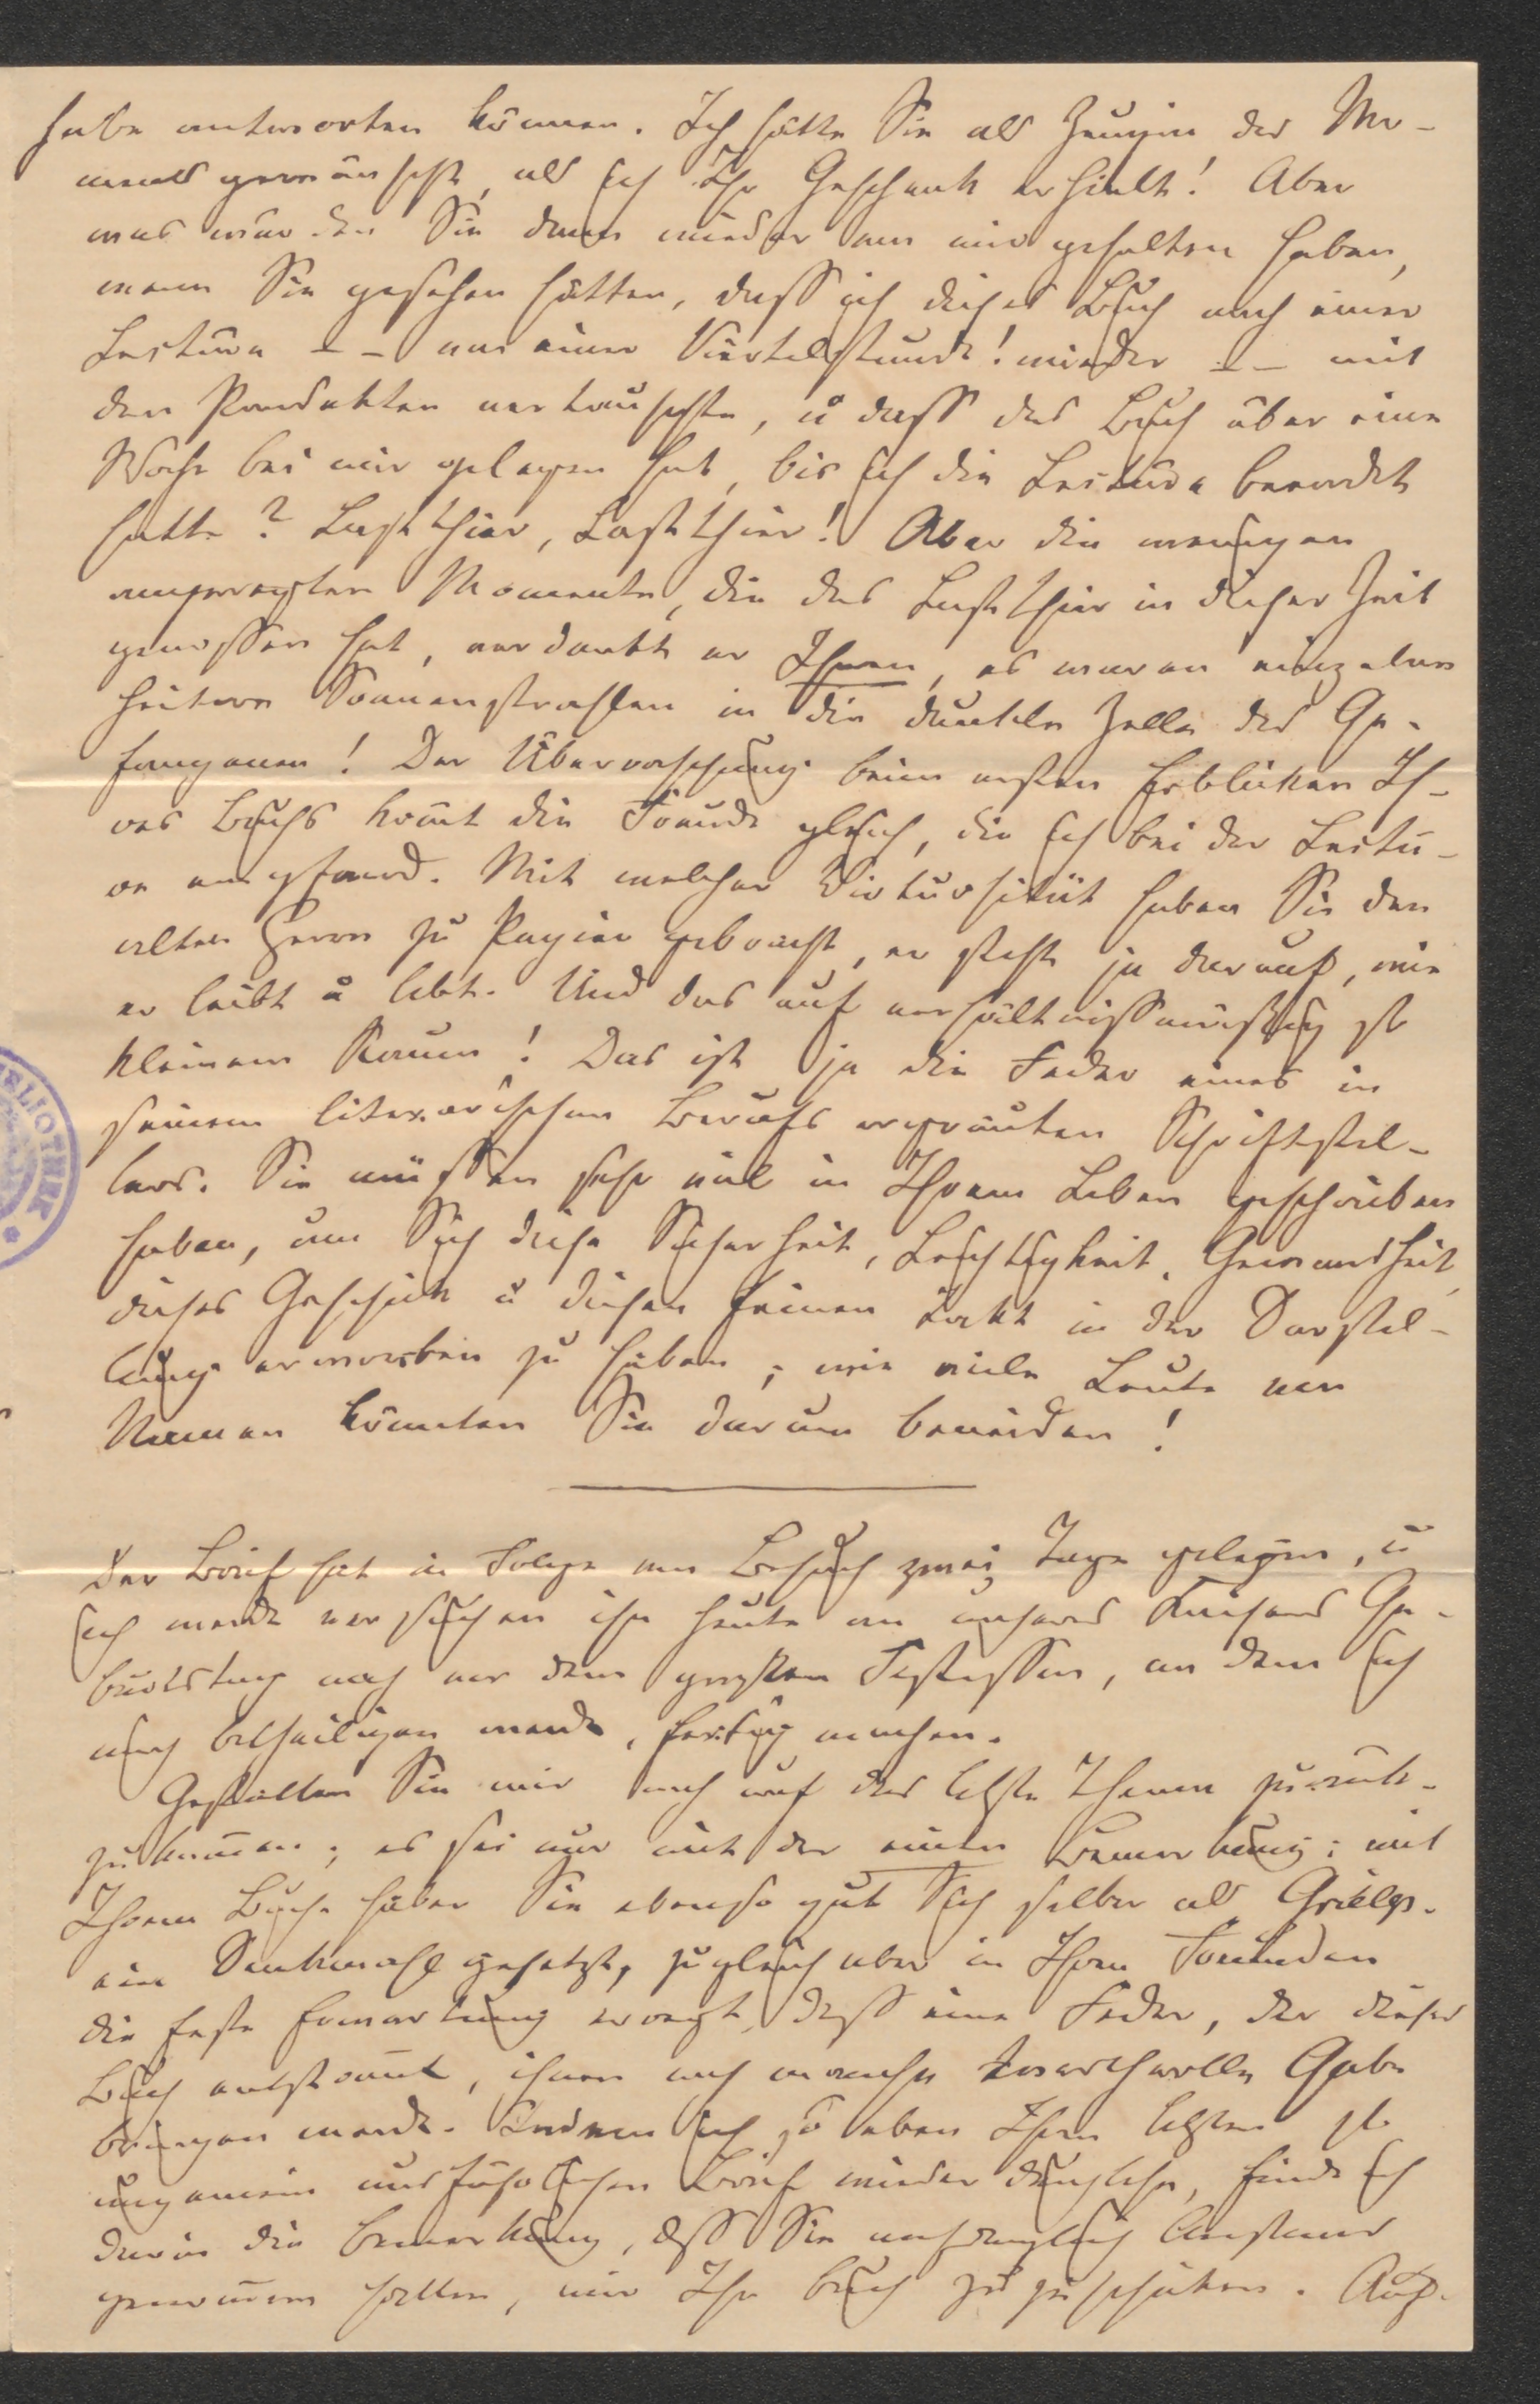 habe antworten können. Ich hätte Sie als Zeugin des Mo-
ments gewünscht, als ich Ihr Geschenk erhielt! Aber
was würden Sie dann wieder von mir gehalten haben,
wenn Sie gesehen hätten, dass ich dieses Buch nach einer
Lectüre – – von einer Viertelstunde! wieder – – mit
den Pandekten vertauschte, u dass das Buch über eine
Woche bei mir gelegen hat, bis ich die Lectüre beendet
hatte? Lastthier, Lastthier! Aber die wenigen
angeregten Momente, die das Lastthier in dieser Zeit
genossen hat, verdankt er Ihnen, es waren einzelne
heitere Sonnenstrahlen in die dunkle Zelle des Ge-
fangenen! Der Überraschung beim ersten Erblicken Ih-
res Buchs komt die Freude gleich, die ich bei der Lectü-
re empfand. Mit welcher Virtuosität haben Sie den
alten Herrn zu Papier gebracht, er steht ja darauf, wie
er leibt u lebt. Und das auf verhältnissmässig so
kleinem Raum! Das ist ja die Feder eines in
seinem literarischen Berufs ergrauten Schriftstel-
lers. Sie müssen sehr viel in Ihrem Leben geschrieben
haben, um Sich diese Sicherheit, Leichtigkeit, Gewandtheit,
dieses Geschick u diesen feinen Takt in der Darstel-
lung erworben zu haben; wie viele Leute von
Namen könnten Sie darum beneiden!
Der Brief hat in Folge von Besuch zwei Tage gelegen, u
ich werde versuchen ihn heute an unseres Kaisers Ge-
burtstag noch vor dem grossen Festessen, an dem ich
mich betheiligen werde, fertig machen.
Gestatten Sie mir noch auf das letzte Thema zurück-
zukommen; es sei nur mit der einen Bemerkung: mit
Ihrem Buche haben Sie ebenso gut Sich selber als
ein Denkmahl gesetzt, zugleich aber in Ihren Freunden
die feste Erwartung erregt, dass eine Feder, der dieses
Buch entstamt, ihnen noch manche werthvolle Gabe
bringen werde. Indem ich so eben Ihren letzten so
ungemein ausführlichen Brief wieder durchlese, finde ich
darin die Bemerkung, dass Sie anfänglich Anstand
genomen hätten, mir Ihr Buch zu zu schicken.